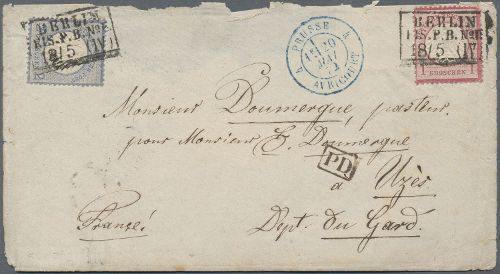 BERLIN
EIS. P. B. No
18/5 (IV)
PRUSSE
20
MAI
AVRICOURT
BERLIN
EIS. P. B. No
18/5 (IV)
GROSCHEN
Monsieur Doumergue, pasteur.
pour Monsieur E. Doumergue
PD
à Uzès
France!
Dept. du Gard.